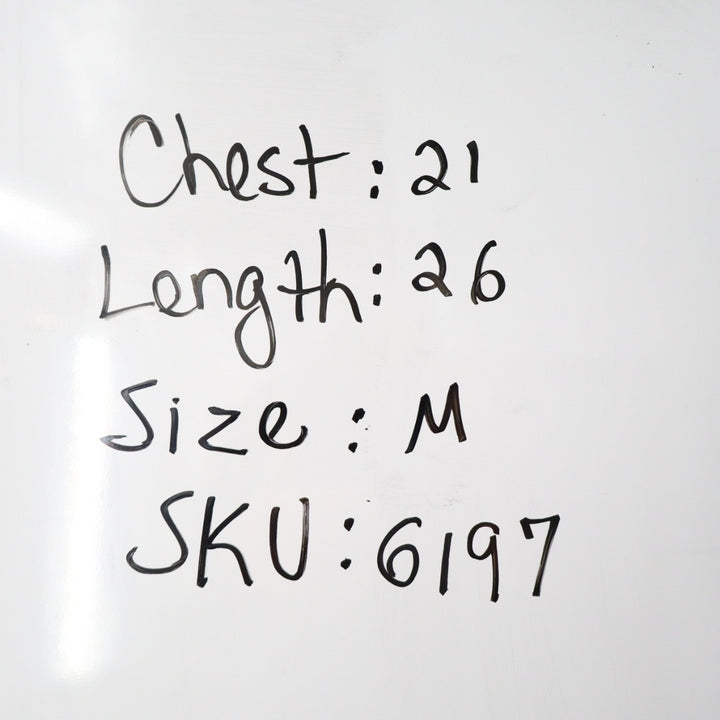 Chest: 21
Length: 26
Size: M
SKU: 6197